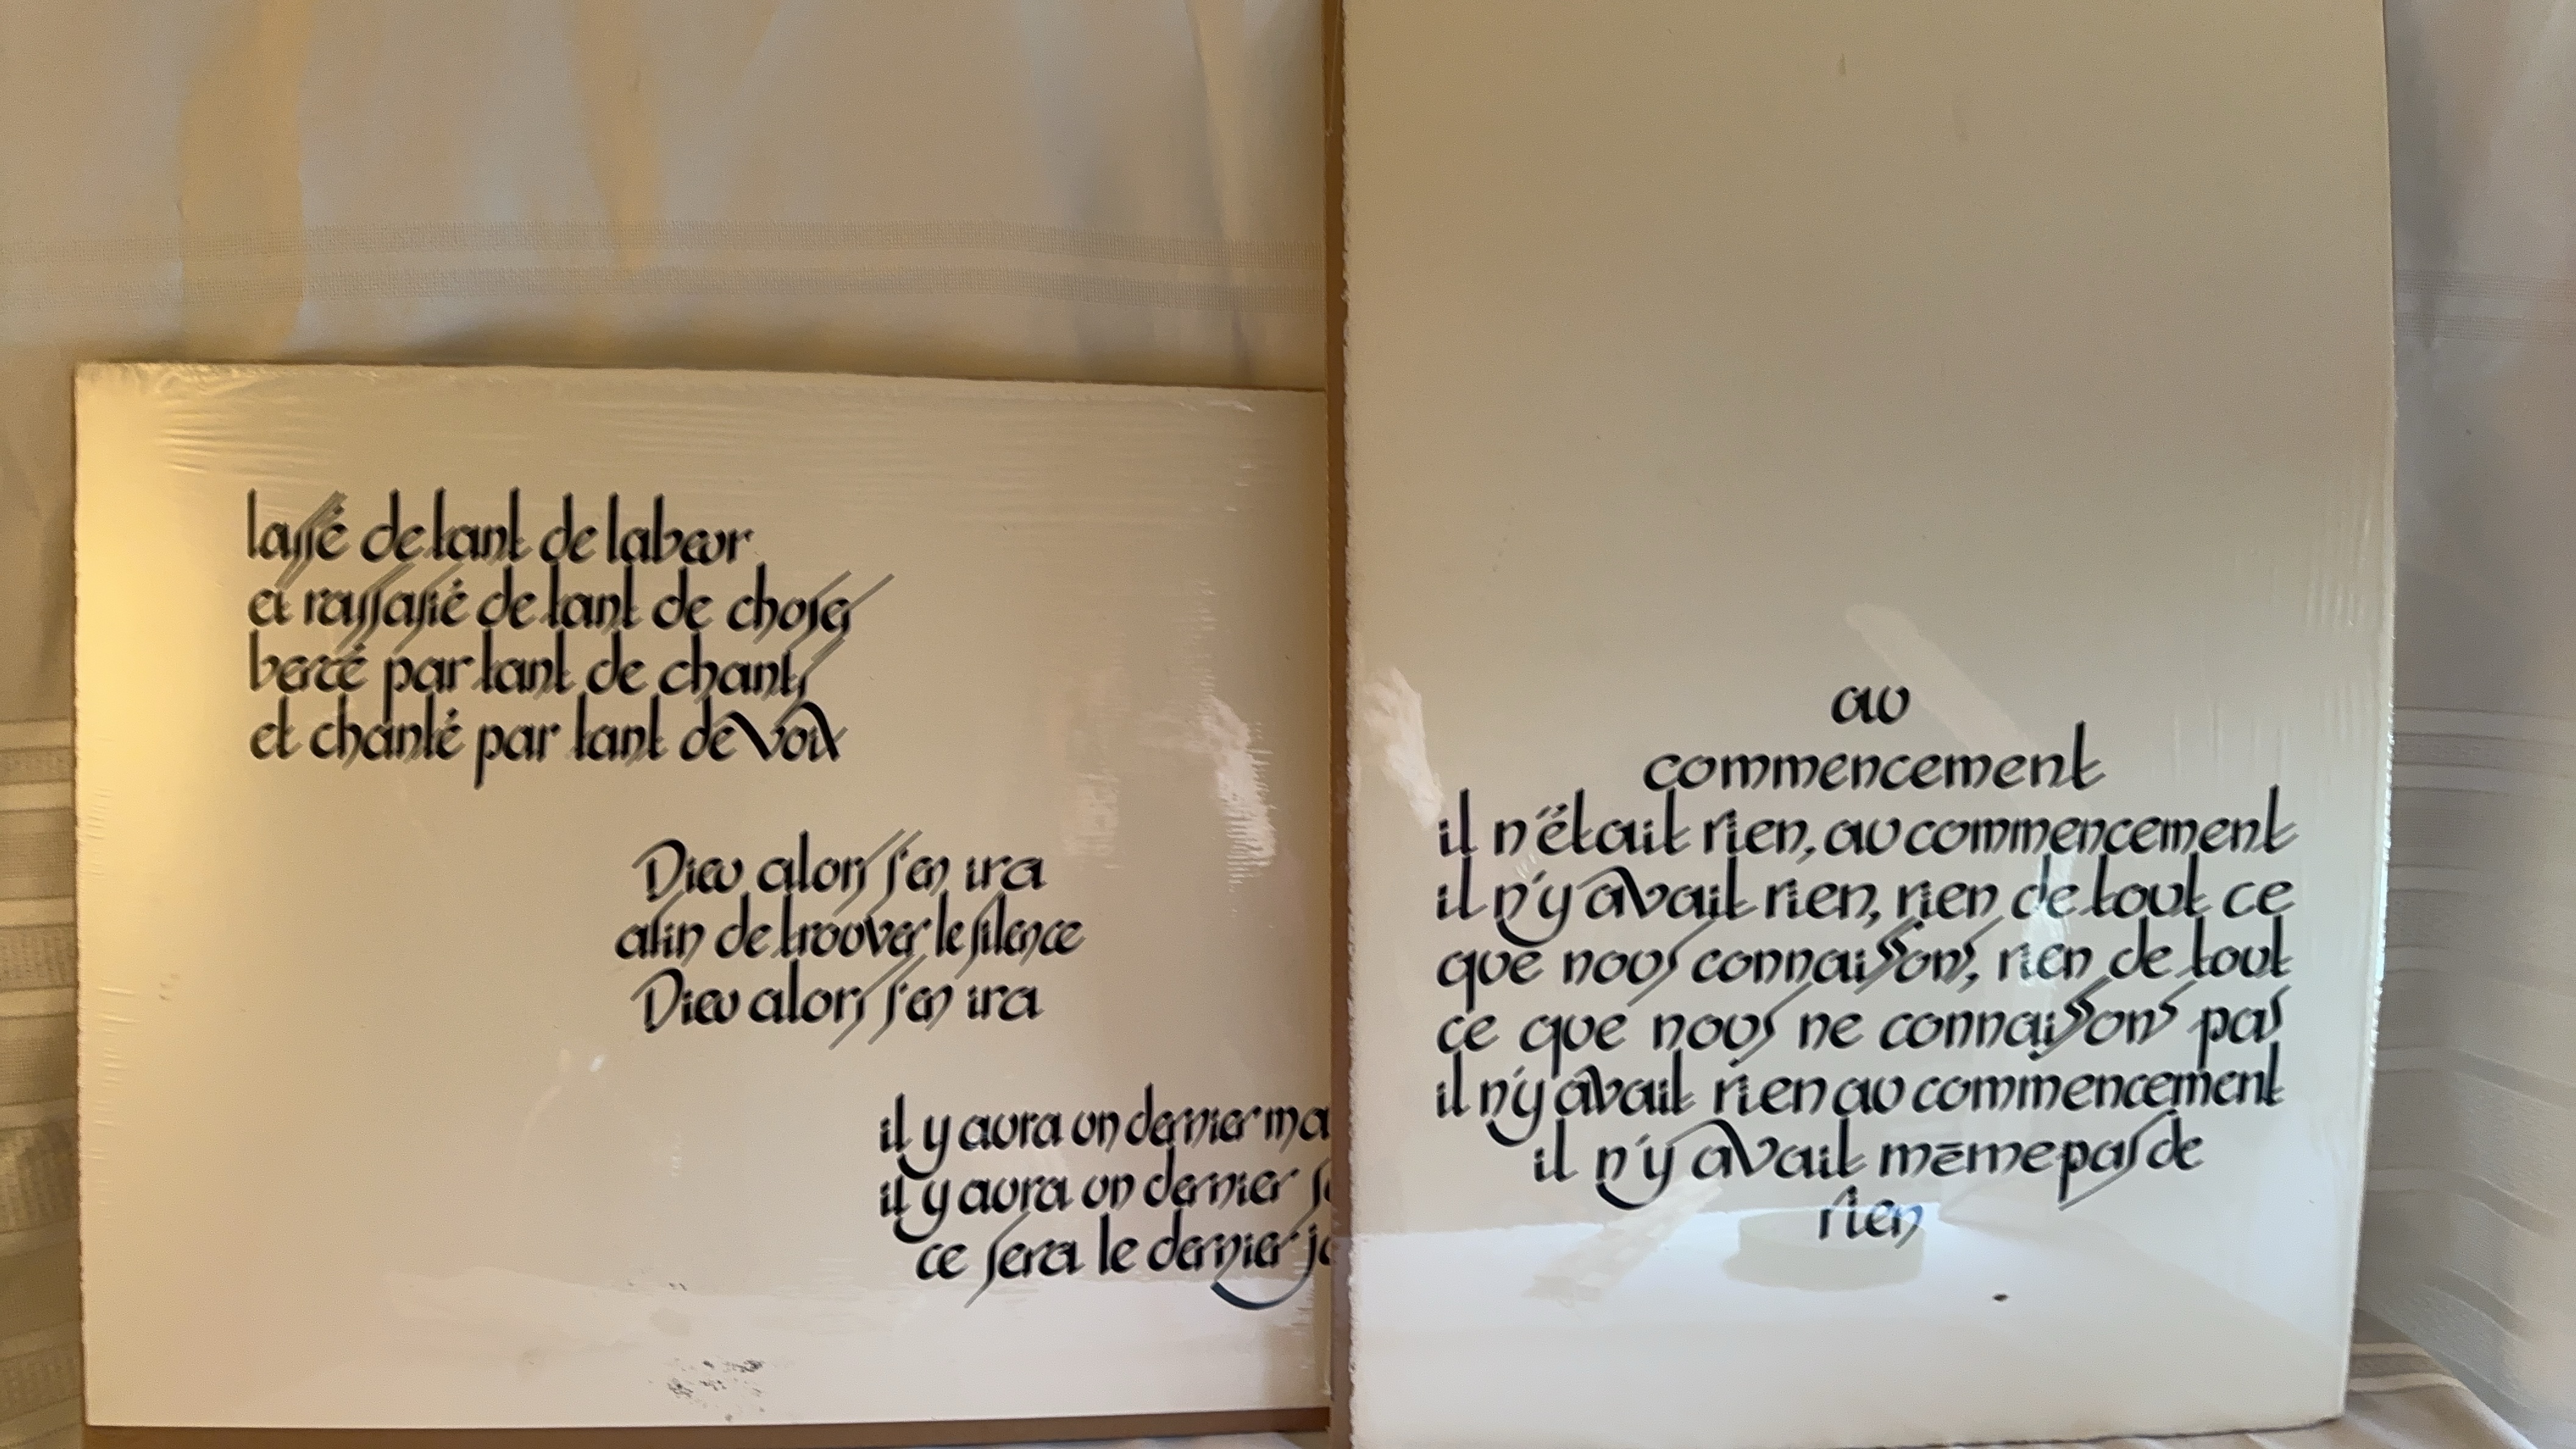 lassé de tant de labeur
et rassasié de tant de choses
bercé par tant de chants
et chanté par tant de voix
Dieu alors s'en ira
afin de trouver le silence
Dieu alors s'en ira
il y aura un dernier
il y aura un dernier
ce sera le dernier
au
commencement
il n'était rien, au commencement
il n'y avait rien, rien de tout ce
que nous connaissons, rien de tout
ce que nous ne connaissons pas
il n'y avait rien au commencement
il n'y avait même pas de
rien